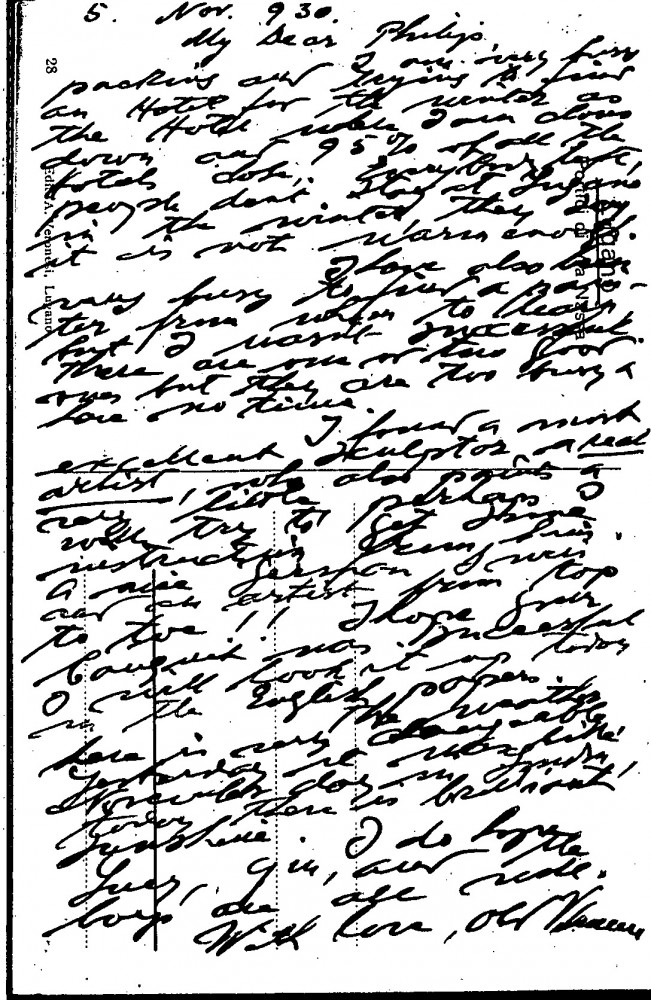 5. Nov. 930.
My Dear Philip.
I am very busy
packing and trying to find
an Hotel for the winter as
the Hotel where I am closes
down and 95% of all the
Hotels do. Everybody left,
people dont stay at Lugano
in the winter, they say
it is not warm enough.
I have also been
very busy to find a pain-
ter from whom to learn
but I wasnt successful
there are one or two good
ones but they are too busy &
have no time.
I found a most
excellent sculptor a real
artist, who also paints a
very little perhaps I
will try to get some
instruction from him.
A nice person I was
and an artist from top
to toe!! I hope your
banquet was successful
I will look it up today
in the English papers.
The weather
here is very changeable
yesterday it was like
November day in
today there is brilliant
sunshine. I do hope
the
boys are all
With love, Old
28
Ediz. A. Veronesi, Lugano
Lugano